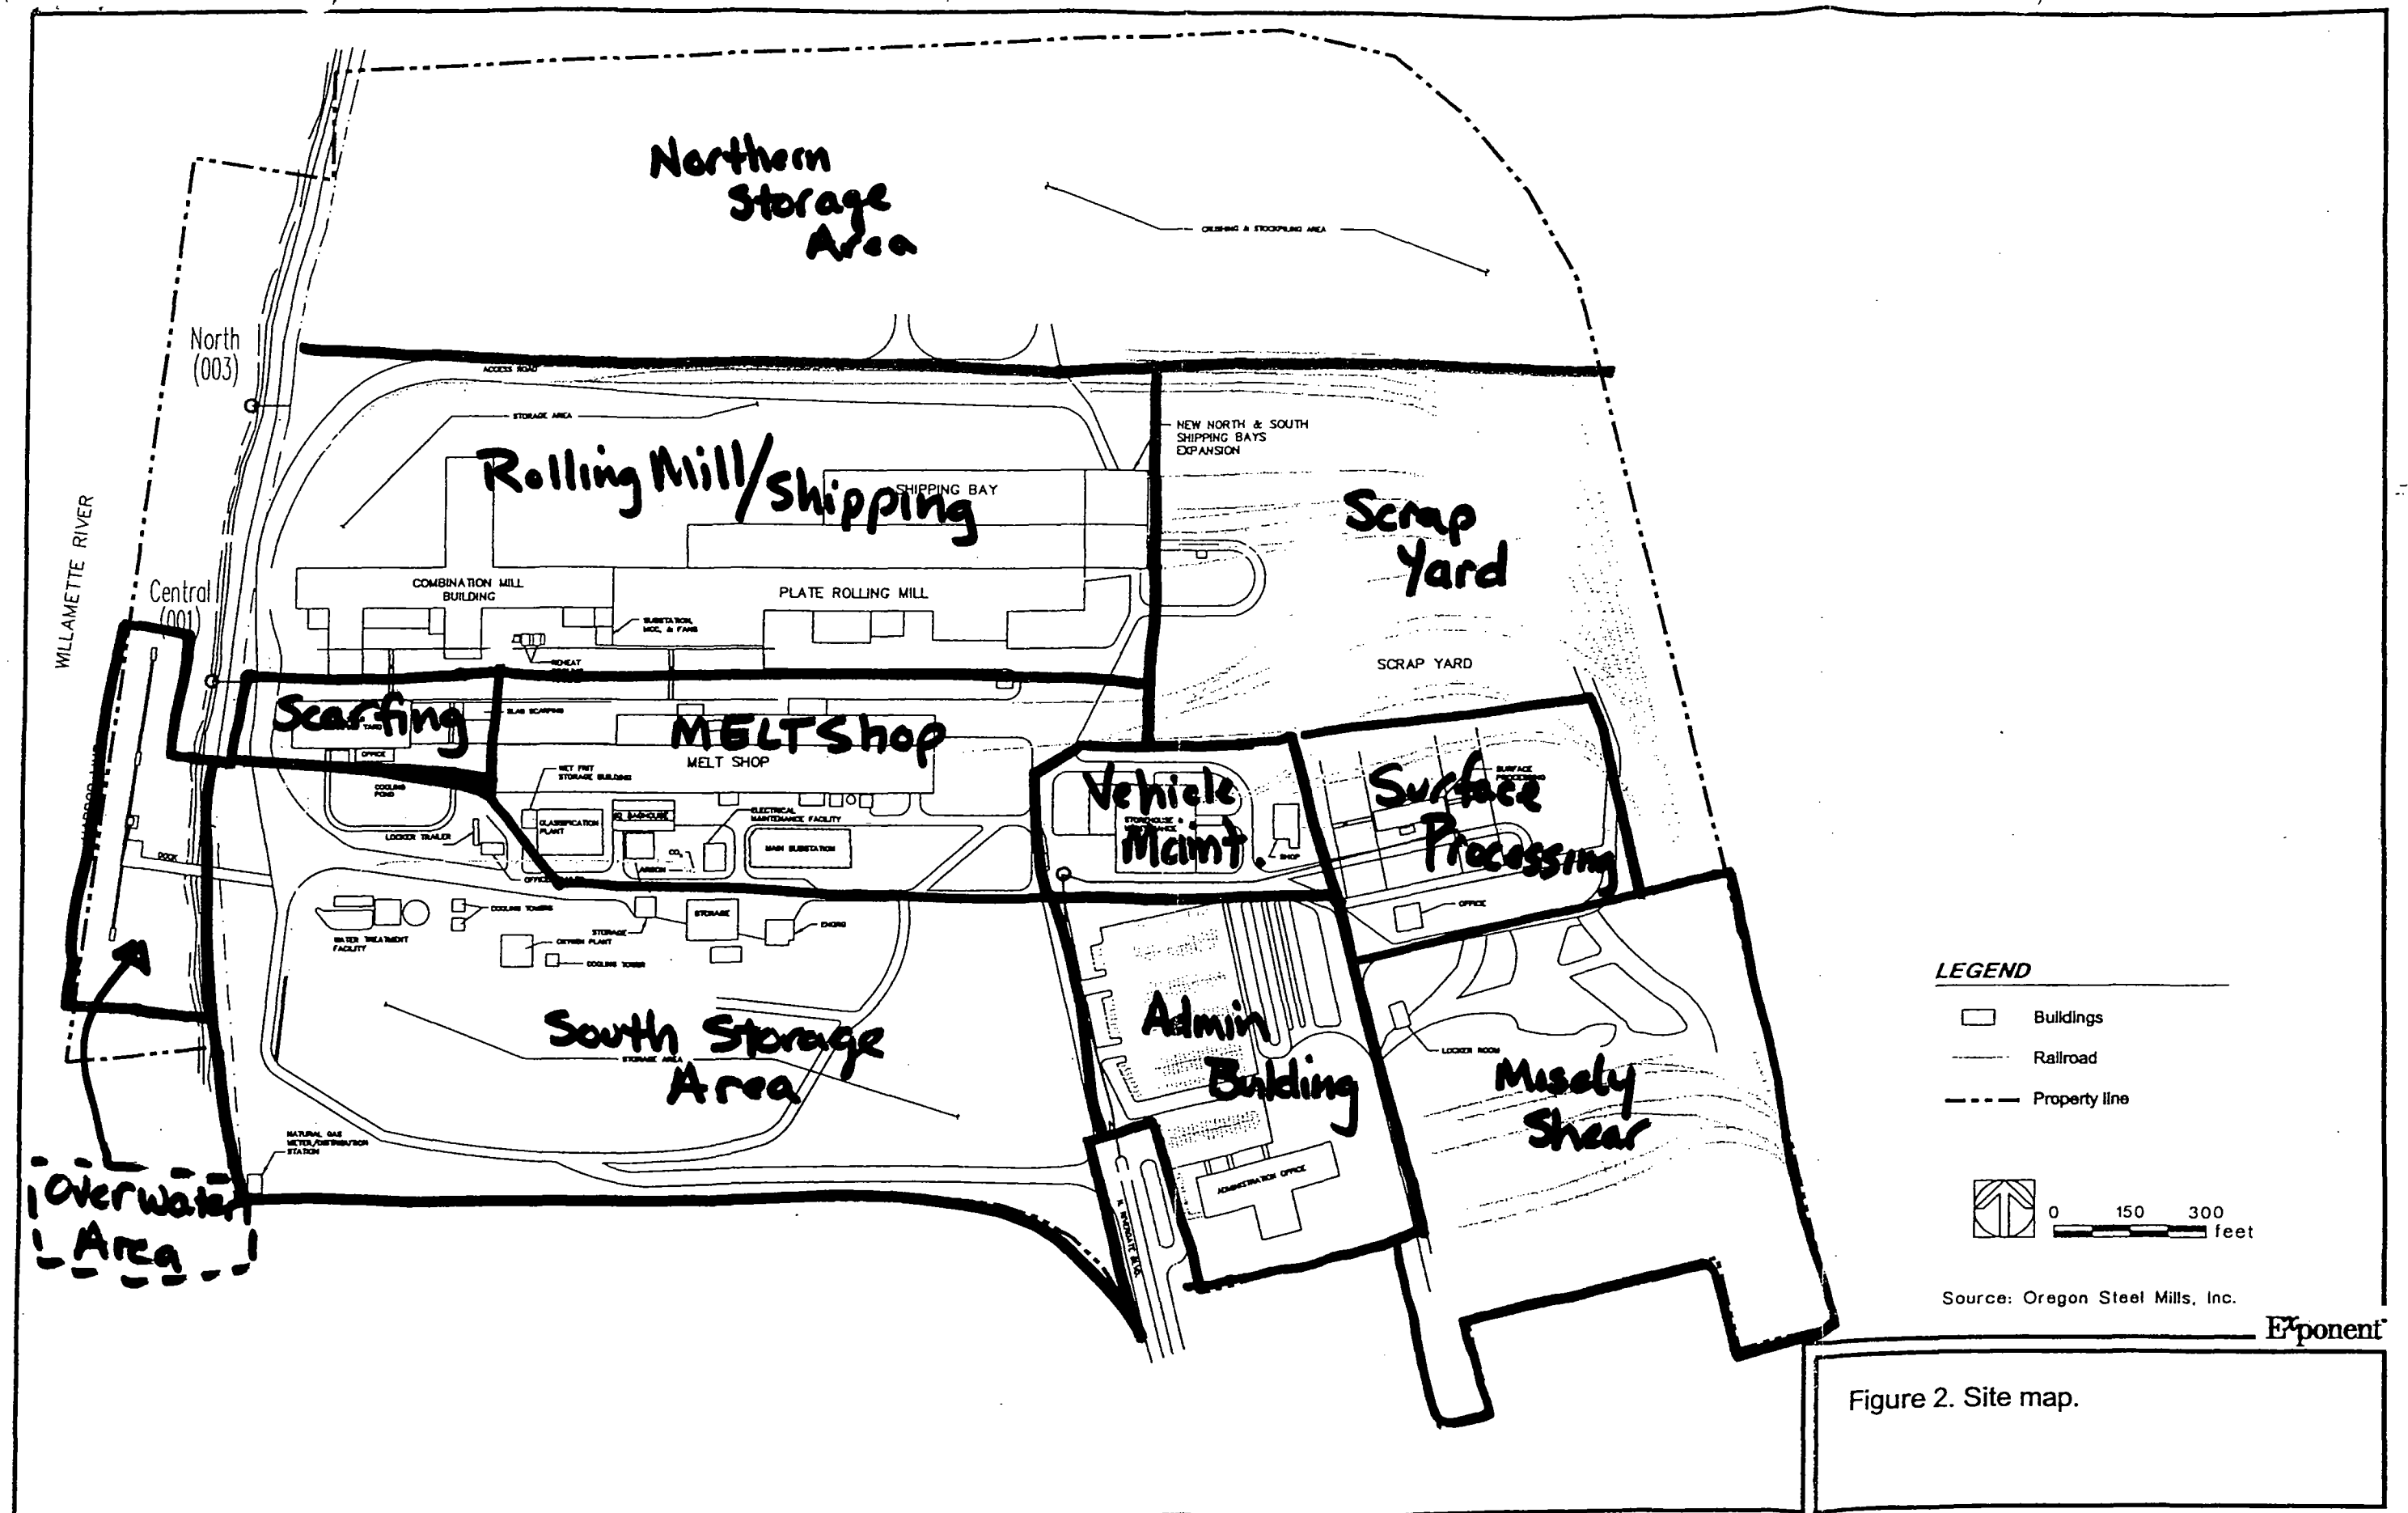 Northern
Storage
Area
CRUSHING & STOCKPILING AREA
North
(003)
ACCESS ROAD
STORAGE AREA
NEW NORTH & SOUTH
SHIPPING BAYS
EXPANSION
Rolling Mill/Shipping
SHIPPING BAY
Scrap
Yard
WILLAMETTE RIVER
Central
(001)
COMBINATION MILL
BUILDING
PLATE ROLLING MILL
SUBSTATION,
MCC, & FANS
REHEAT
SCRAP YARD
Scarfing
SLAB SCARFING
YARD
OFFICE
MELT Shop
MELT SHOP
WET FRIT
STORAGE BUILDING
COOLING
POND
CLASSIFICATION
PLANT
BAGHOUSE
ELECTRICAL
MAINTENANCE FACILITY
LOCKER TRAILER
MAIN SUBSTATION
CO₂
ARGON
OFFICE
DOCK
Vehicle
Maint.
STOREHOUSE &
MAINTENANCE
SHOP
Surface
Processing
SURFACE
PROCESSING
OFFICE
COOLING TOWERS
WATER TREATMENT
FACILITY
STORAGE
STORAGE
OXYGEN PLANT
COOLING TOWER
South Storage
Area
STORAGE AREA
Admin
Building
LOCKER ROOM
Shear
ADMINISTRATION OFFICE
NATURAL GAS
METER/DISTRIBUTION
STATION
Overwater
Area
N. RIVERGATE BLVD.
LEGEND
Buildings
Railroad
Property line
0 150 300
feet
Source: Oregon Steel Mills, Inc.
Exponent
Figure 2. Site map.